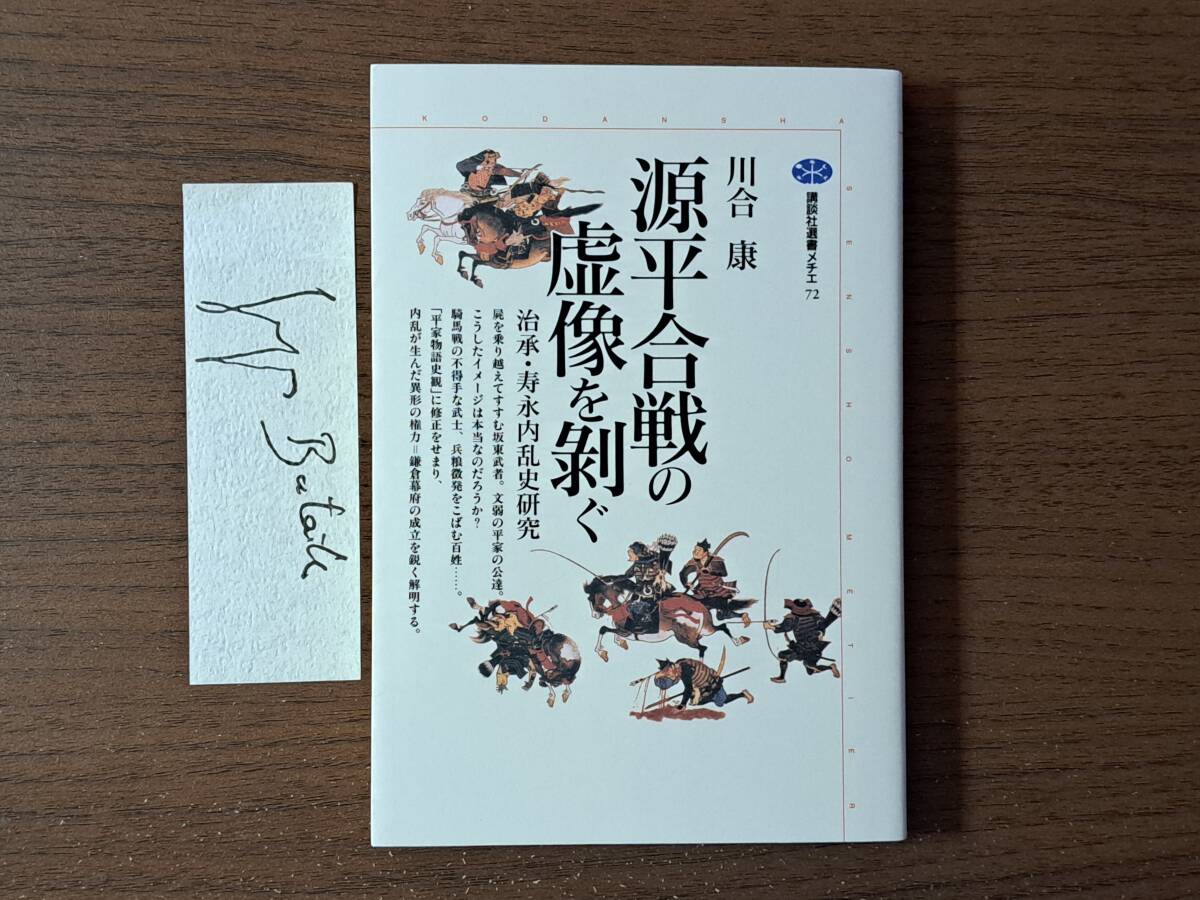 KODANSHA
SENSHO METIER
講談社選書メチエ 72
川合 康
源平合戦の
虚像を剝ぐ
治承・寿永内乱史研究
屍を乗り越えてすすむ坂東武者。文弱の平家の公達。
こうしたイメージは本当なのだろうか?
騎馬戦の不得手な武士、兵粮徴発をこばむ百姓……。
「平家物語史観」に修正をせまり、
内乱が生んだ異形の権力=鎌倉幕府の成立を鋭く解明する。
Bataille